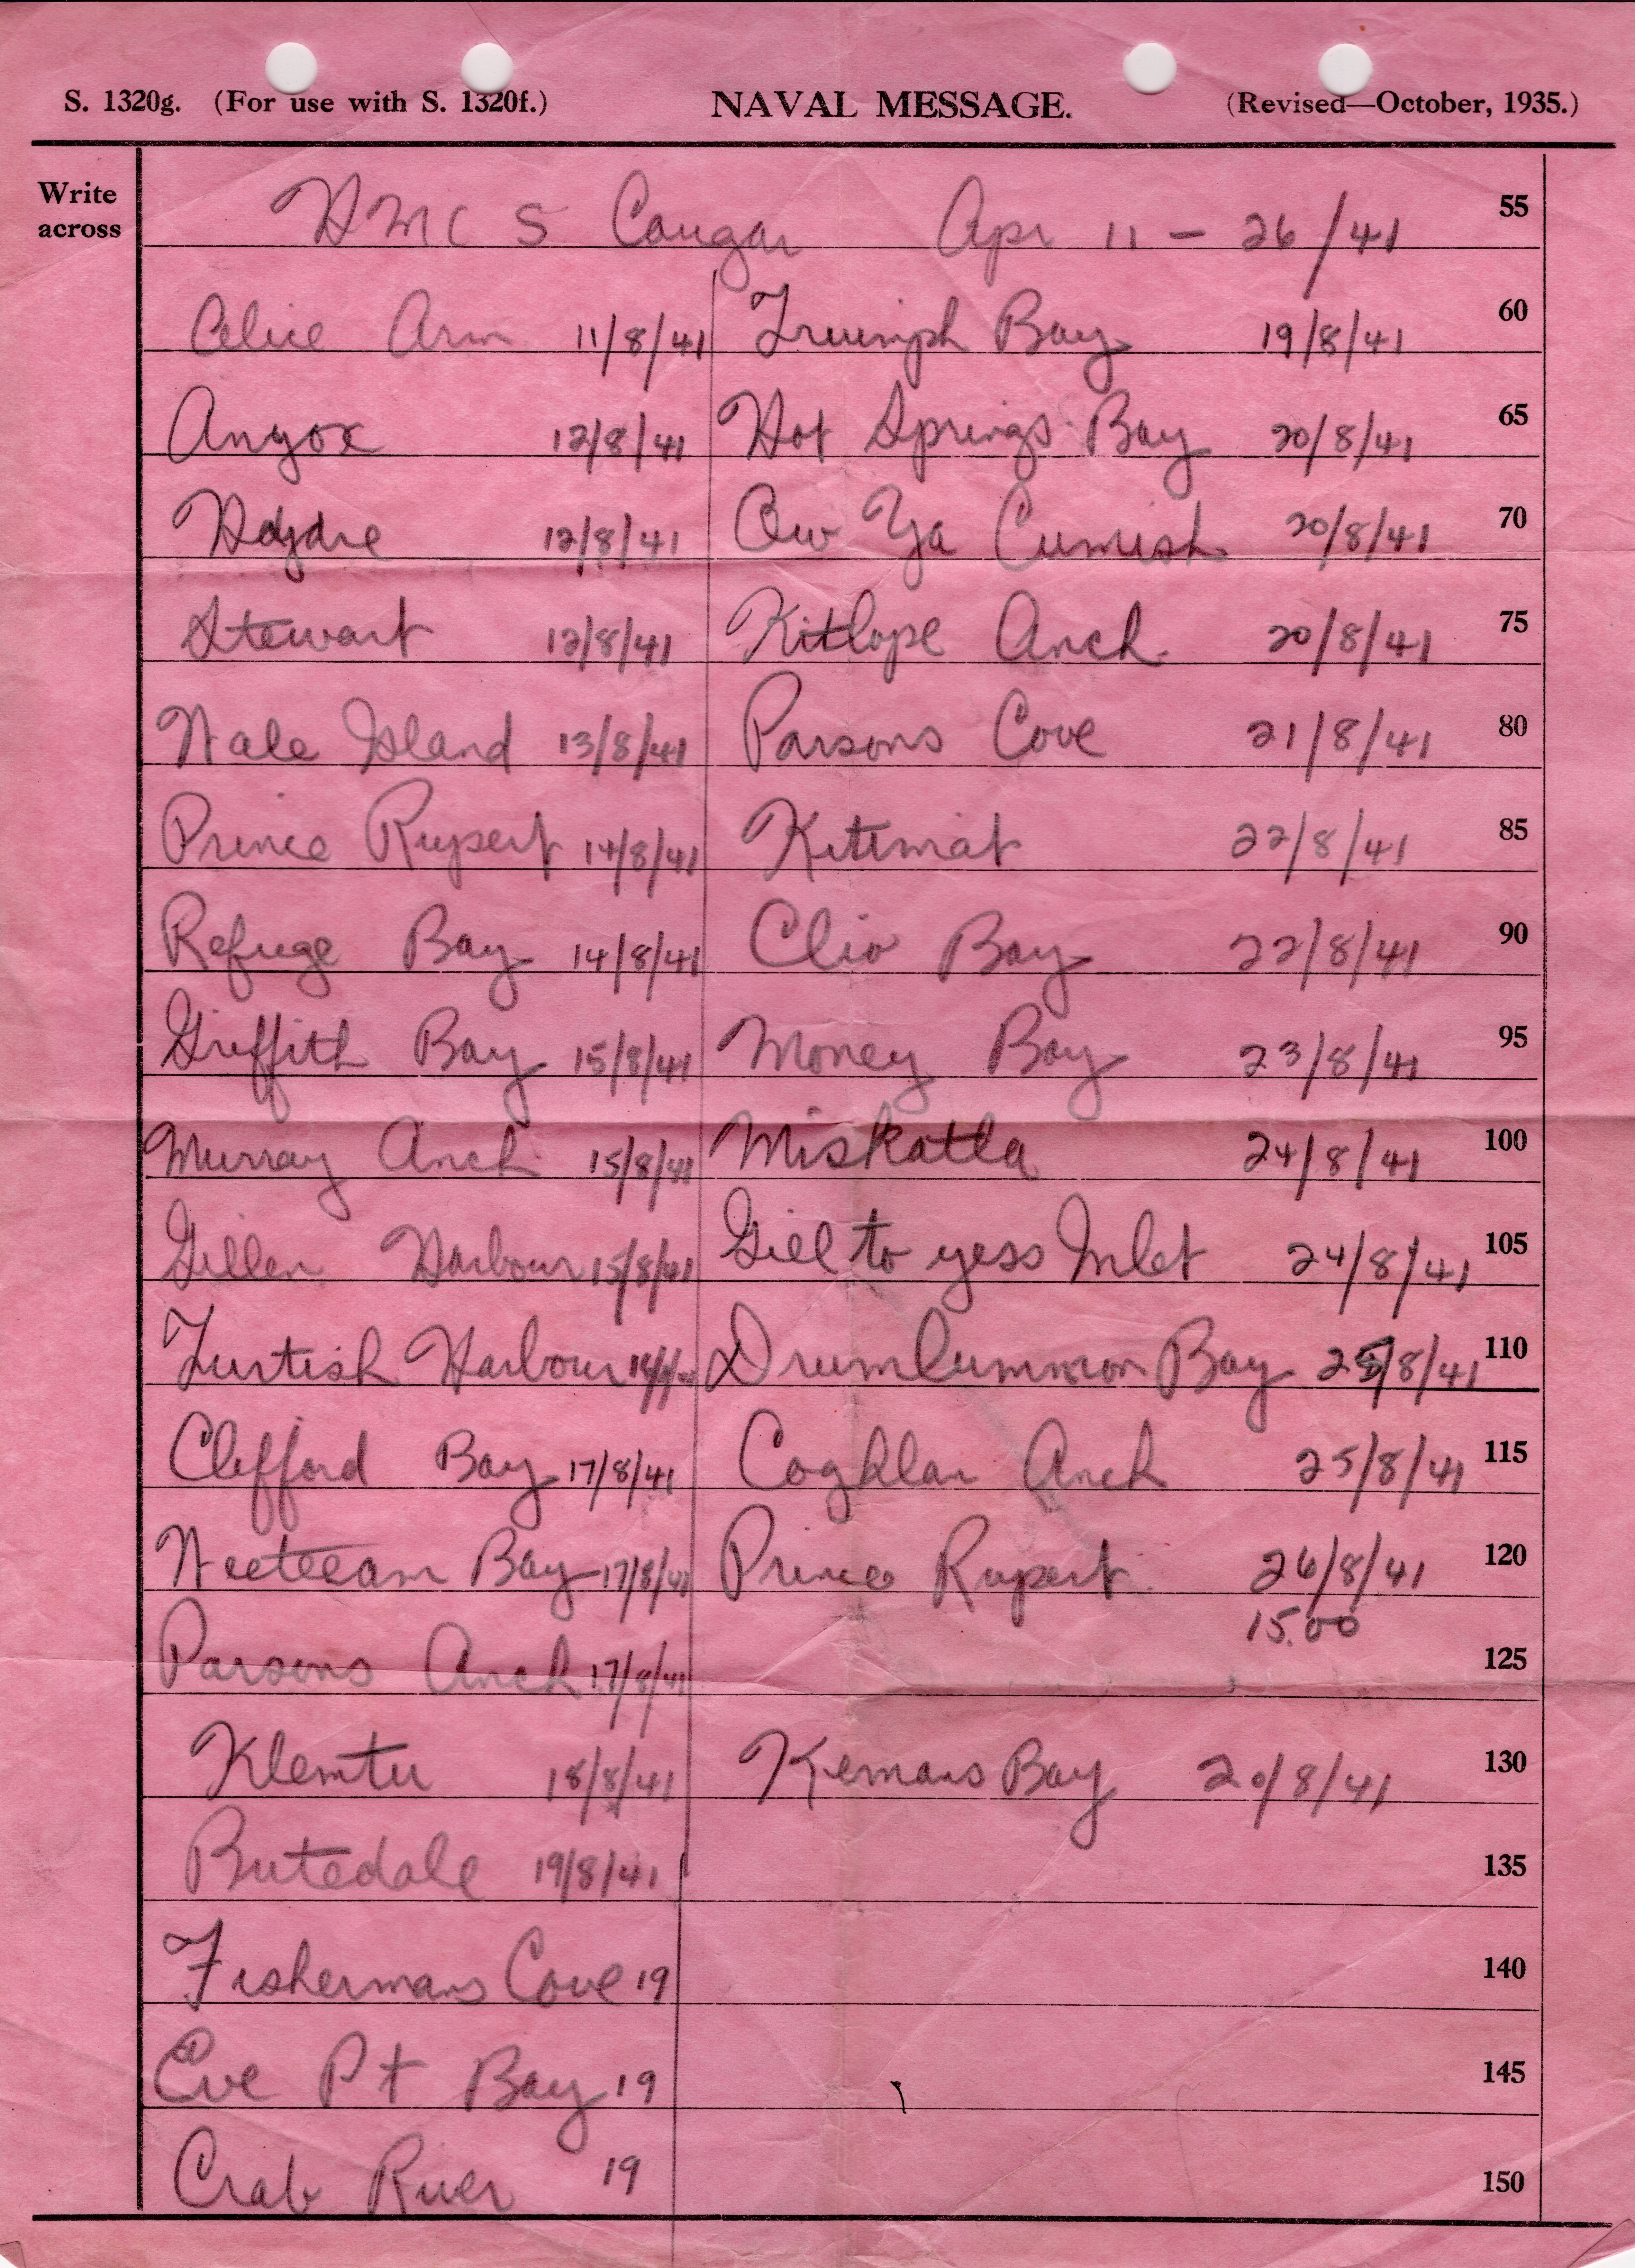 S. 1320g. (For use with S. 1320f.) NAVAL MESSAGE. (Revised—October, 1935.)
Write across
HMC S Cougar Apr 11 - 26/41 55
Alice Arm 11/8/41 Triumph Bay 19/8/41 60
Anyox 12/8/41 Hot Springs Bay 20/8/41 65
12/8/41 Ow Ya Cumish 20/8/41 70
Stewart 12/8/41 Kitlope Anch. 20/8/41 75
Wale Island 13/8/41 Parsons Cove 21/8/41 80
Prince Rupert 14/8/41 Kitimat 22/8/41 85
Refuge Bay 14/8/41 Clio Bay 22/8/41 90
Griffith Bay 15/8/41 Money Bay 23/8/41 95
Murray Anch 15/8/41 Miskatla 24/8/41 100
Gillen Harbour 15/8/41 Giel to yess Inlet 24/8/41 105
Turtish Harbour Drumlummon Bay 25/8/41 110
Clifford Bay 17/8/41 Coghlan Anch 25/8/41 115
Weeteeam Bay 17/8/41 Prince Rupert 26/8/41 120
15.00
Parsons Anch 17/8/41 125
Klemtu 18/8/41 Kemano Bay 20/8/41 130
Butedale 19/8/41 135
Fishermans Cove 19 140
Eve Pt Bay 19 145
Crab River 19 150